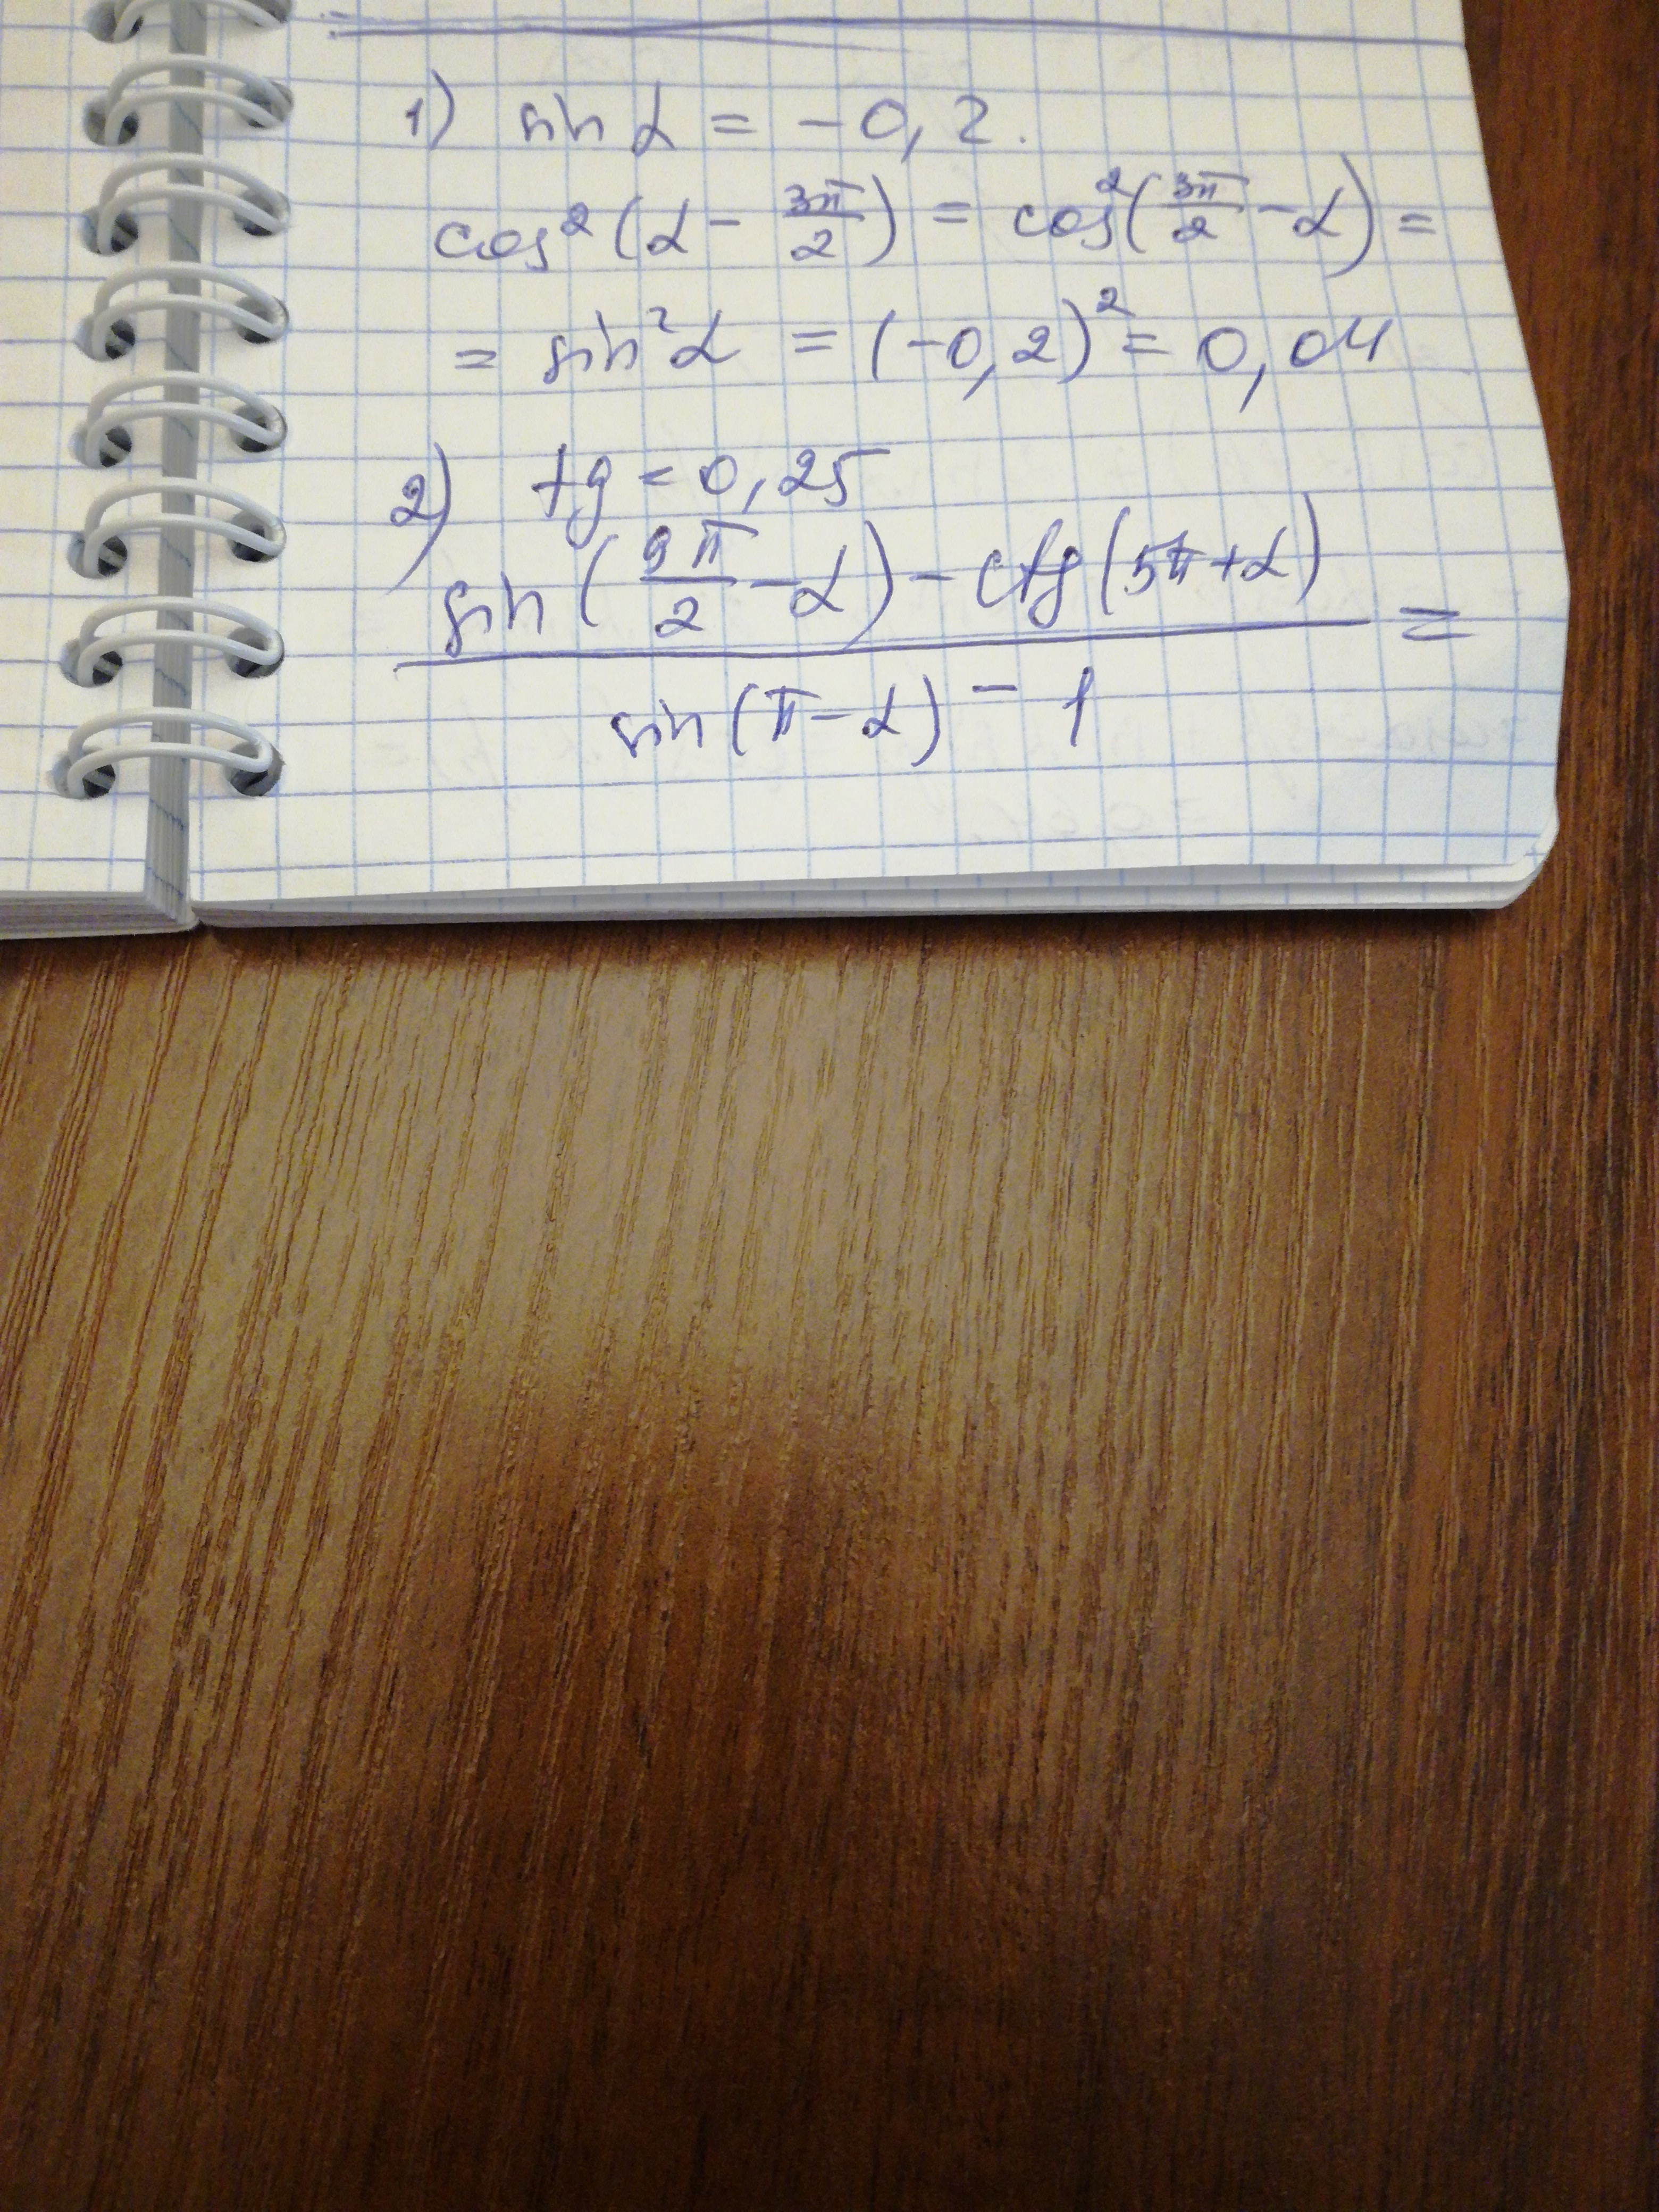 1) sin α = -0,2.
cos²(α - 3π/2) = cos²(3π/2 - α) =
= sin²α = (-0,2)² = 0,04
2) tg = 0,25
sin(9π/2 - α) - ctg(5π + α)
=
sin(π - α) - 1